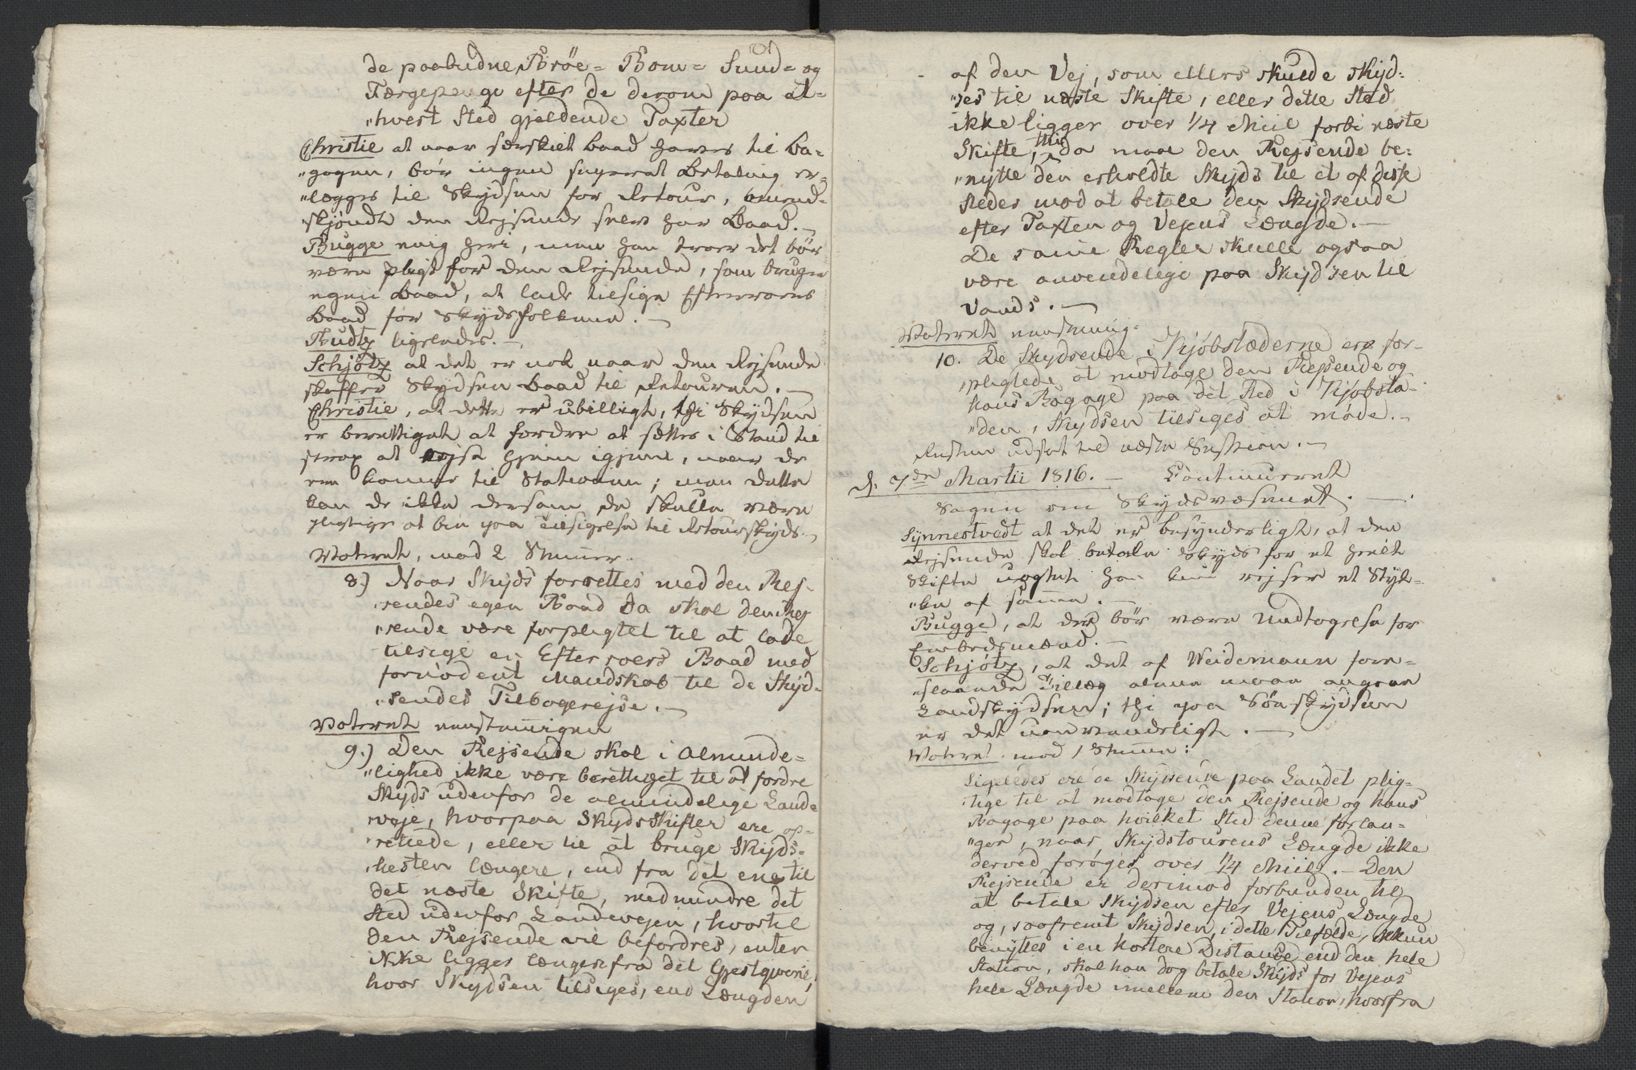 de paabudne Broe= Bom= Sund= og
Færgepenge efter de derom paa et=
"hvert Sted gjældende Taxter
Christie at naar særskilt Baad haves til Ba=
"gagen, bør ingen separat Betaling er=
"lægges til Skydsen for Retour,
skjøndt den Rejsende selv har Baad. —
Bugge enig heri, men han troer det bør
være pligt for den Rejsende, som bruger
egen Baad, at lade tilsige Efterroers
Baad for Skydsfolkene. —
Budtz ligeledes. —
Schjøtz at det er nok naar den Rejsende
skaffer Skydsen Baad til Retouren. —
Christie, at dette er ubilligt, thi Skydsen
er berettiget at fordre at sættes i Stand til
strax at rejse hjem igjen, naar de
komme til Stationen; men dette
kan de ikke dersom de skulle være
pligtige at bie paa Tilsigelse til Retourskyds. —
Voteret, mod 2 Stemmer.
8.) Naar Skyds forrettes med den Rej=
"sendes egen Baad da skal den Rej
"sende være forpligtet til at lade
tilsige en Efterroers Baad med
fornødent Mandskab til de Skyd=
"sendes Tilbagerejse. —
Voteret eenstemmigen
9.) Den Rejsende skal i Alminde=
"lighed ikke være berettiget til at fordre
Skyds udenfor de almindelige Lande
veje, hvorpaa Skydsskifter ere op=
"rettede, eller til at bruge Skyds=
"hesten længere, end fra det ene til
det næste Skifte, medmindre det
Sted udenfor Landevejen, hvortil
den Rejsende vil befordres, enten
ikke ligger længere fra det Gjestgiverie,
hvor Skydsen tilsiges, end Længden
af den Vej, som ellers skulde skyd=
"ses til næste Skifte, eller dette Sted
ikke ligger over 1/4 Miil forbi næste
Skifte, thi da maae den Rejsende be=
"nytte den erholdte Skyds til et af disse
Steder mod at betale den Skydsende
efter Taxten og Vejens Længde. —
De samme Regler skulle ogsaa
være anvendelige paa Skydsen til
Vands. —
Voteret eenstemmig.
10. De Skydsende i Kjøbstæderne ere for=
"pligtede at modtage den Rejsende og
hans Bagage paa det Sted i Kjøbsta=
"den, Skydsen tilsiges at møde. —
Resten udsat til næste Session. —
d. 7de Martii 1816. — Continueret
Sagen om Skydsvæsenet. —
Synnestvedt at det er besynderligt, at den
Rejsende skal betale Skyds for et heelt
Skifte uagtet han kun rejser et Styk=
"ke af samme. —
Bugge, at der bør være Undtagelse for
Embedsmænd. —
Schjøtz, at det af Weidemann fore=
"slaaende Tillæg alene maae angaae
Landskydsen; thi paa Søeskydsen
er det uanvendeligt. —
Voteret mod 1 Stemme:
Ligeledes ere de Skydsende paa Landet plig=
"tige til at modtage den Rejsende og hans
Bagage paa hvilket Sted denne forlan=
"ger, naar Skydstourens Længde ikke
derved forøges over 1/4 Miil. — Den
Rejsende er derimod forbunden til
at betale Skydsen efter Vejens Længde
og, saafremt Skydsen, i dette Tilfælde, ikkun
benyttes i en kortere Distance end den hele
Station, skal han dog betale Skyds for Vejens
hele Længde imellem den Station, hvorfra